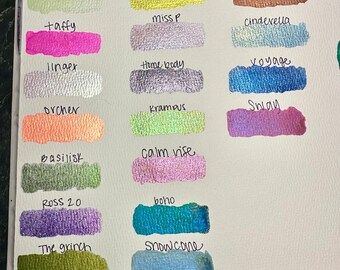 taffy
miss p
cinderella
linger
Homebody
voyage
orcher
krampus
splat
Basilisk
calm vise
Ross 20
boho
The grinch
snowcone